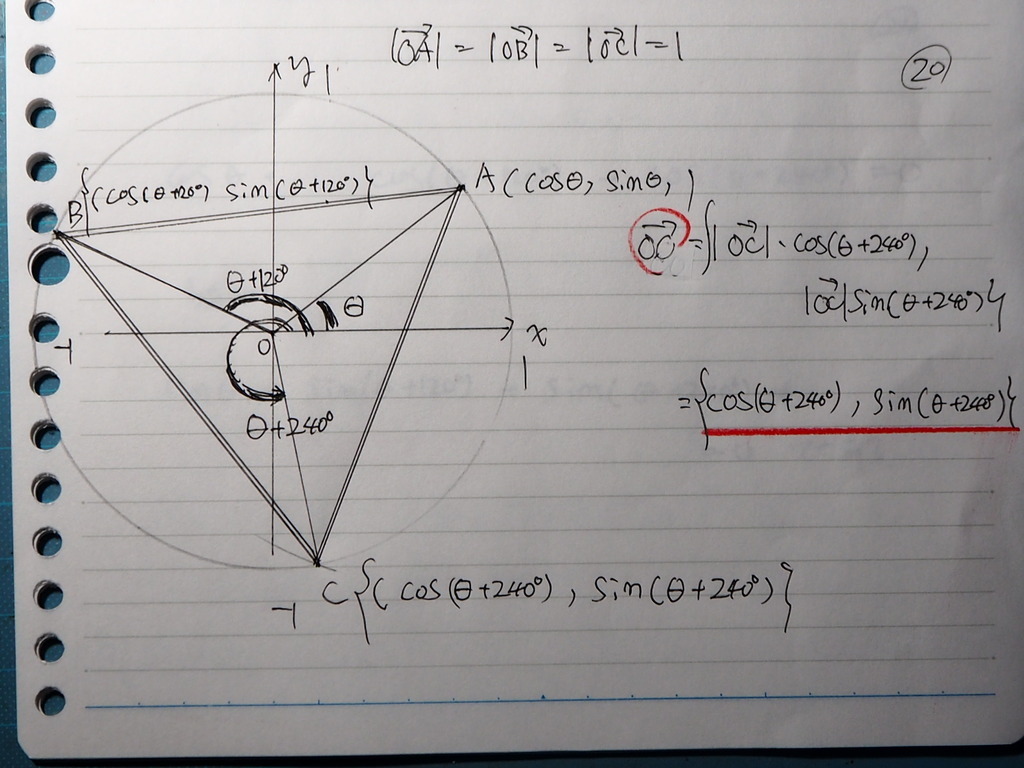 |OA→| = |OB→| = |OC→| = 1
20
y 1
B{(cos(θ+120°) sin(θ+120°)}
A(cosθ, sinθ, )
OC→ = {|OC→|・cos(θ+240°),
|OC→|sin(θ+240°)}
θ+120°
θ
-1
O
x
1
θ+240°
={cos(θ+240°), sin(θ+240°)}
-1
C{(cos(θ+240°), sin(θ+240°)}